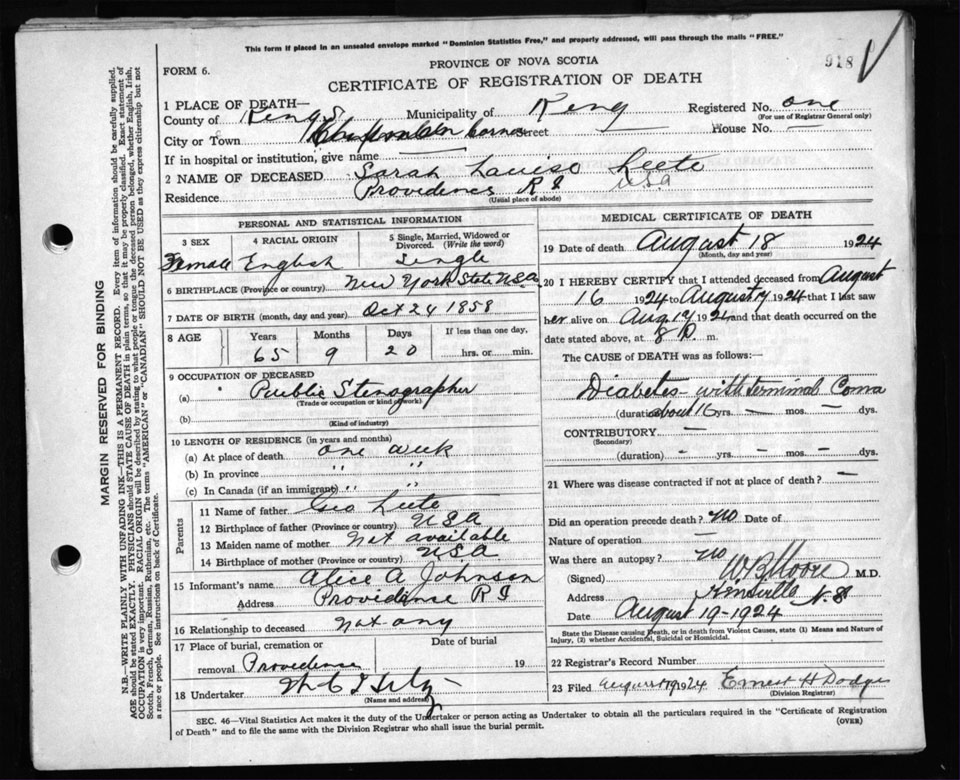 This form if placed in an unsealed envelope marked "Dominion Statistics Free," and properly addressed, will pass through the mails "FREE."
918
PROVINCE OF NOVA SCOTIA
FORM 6.
CERTIFICATE OF REGISTRATION OF DEATH
1 PLACE OF DEATH—
County of Kings Municipality of King Registered No. one
(For use of Registrar General only)
City or Town Street House No. —
If in hospital or institution, give name
2 NAME OF DECEASED Sarah Louise Leete
Residence Providence R I USA
(Usual place of abode)
PERSONAL AND STATISTICAL INFORMATION
3 SEX 4 RACIAL ORIGIN 5 Single, Married, Widowed or Divorced. (Write the word)
Female English Single
6 BIRTHPLACE (Province or country) New York State U.S.A.
7 DATE OF BIRTH (month, day and year) Oct 24 1858
8 AGE Years Months Days If less than one day,
65 9 20 hrs. or min.
9 OCCUPATION OF DECEASED
(a) Public Stenographer
(Trade or occupation or kind of work)
(b)
(Kind of industry)
10 LENGTH OF RESIDENCE (in years and months)
(a) At place of death one week
(b) In province " "
(c) In Canada (if an immigrant) " "
Parents
11 Name of father Geo Leete
12 Birthplace of father (Province or country) USA
13 Maiden name of mother Not available
14 Birthplace of mother (Province or country) USA
15 Informant's name Alice A Johnson
Address Providence R I
16 Relationship to deceased Not any
17 Place of burial, cremation or Date of burial
removal Providence 19
18 Undertaker
(Name and address)
MEDICAL CERTIFICATE OF DEATH
19 Date of death August 18 1924
(Month, day and year)
20 I HEREBY CERTIFY that I attended deceased from August
16 1924 to August 17 1924 that I last saw
her alive on Aug 17 1924 and that death occurred on the
date stated above, at 8 P. m.
The CAUSE of DEATH was as follows:
Diabetes with terminal Coma
(duration) about 16 yrs. — mos. — dys.
CONTRIBUTORY —
(Secondary)
(duration) — yrs. — mos. — dys.
21 Where was disease contracted if not at place of death? —
Did an operation precede death? no Date of
Nature of operation —
Was there an autopsy? no
(Signed) W. B. Moore M.D.
Address Kentville N.S
Date August 19-1924
State the Disease causing Death, or in death from Violent Causes, state (1) Means and Nature of
Injury, (2) whether Accidental, Suicidal or Homicidal.
22 Registrar's Record Number
23 Filed August 19 1924 Ernest H Dodge
(Division Registrar)
SEC. 46—Vital Statistics Act makes it the duty of the Undertaker or person acting as Undertaker to obtain all the particulars required in the "Certificate of Registration
of Death" and to file the same with the Division Registrar who shall issue the burial permit. (OVER)
MARGIN RESERVED FOR BINDING
N.B.—WRITE PLAINLY WITH UNFADING INK—THIS IS A PERMANENT RECORD. Every item of information should be carefully supplied.
AGE should be stated EXACTLY. PHYSICIANS should STATE CAUSE OF DEATH in plain terms, so that it may be properly classified. Exact statement of
OCCUPATION is very important. RACIAL ORIGIN will be described by stating to what people or tongue the deceased person belonged, whether English, Irish,
Scotch, French, German, Russian, Ruthenian, etc. The terms "AMERICAN" or "CANADIAN" SHOULD NOT BE USED as they express citizenship but not
a race or people. See instructions on back of Certificate.